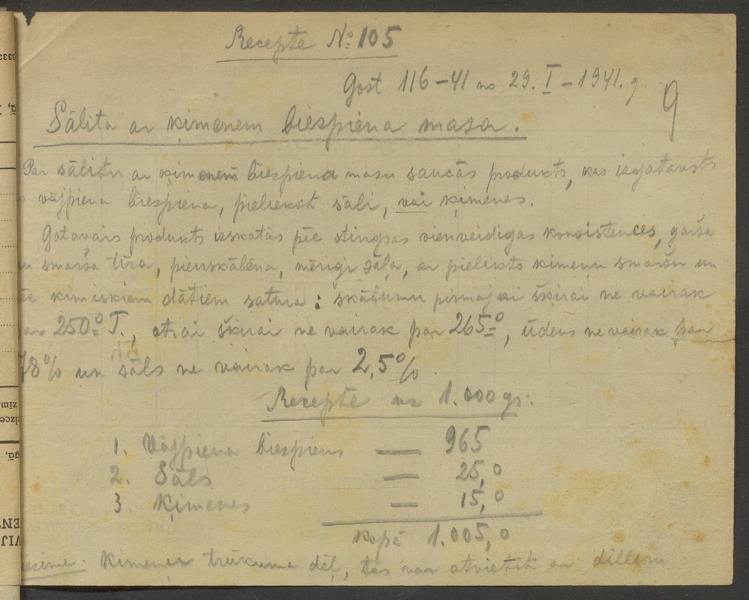 Recepte № 105
Gost 116-41 no 29. I-1941. g.
9
Sālīta ar ķimenēm biespiena masa.
Par sālītu ar ķimenēm biespiena masu saucās produkts, kas izgatavots
vājpiena biespiena, pieliekot sāli, vai ķimenes.
Gatavais produkts izskatās pēc stingras vienveidīgas konsistences, garša
un smarža tīra, pienskābēna, mērīgi sāļa, ar pielikto ķimeņu smaržu un
pēc ķīmiskiem datiem satura: skābumu pirmajai šķirai ne vairāk
par 250° T., otrai šķirai ne vairāk par 265°, ūdens ne vairāk par
78% un sāls ne vairāk par 2,5%.
Recepte uz 1.000 gr:
1. Vājpiena biespiens — 965
2. Sāls — 25,0
3 Ķimenes — 15,0
kopā 1.005,0
Ķimenes trūkuma dēļ, tās var atvietot ar dillem